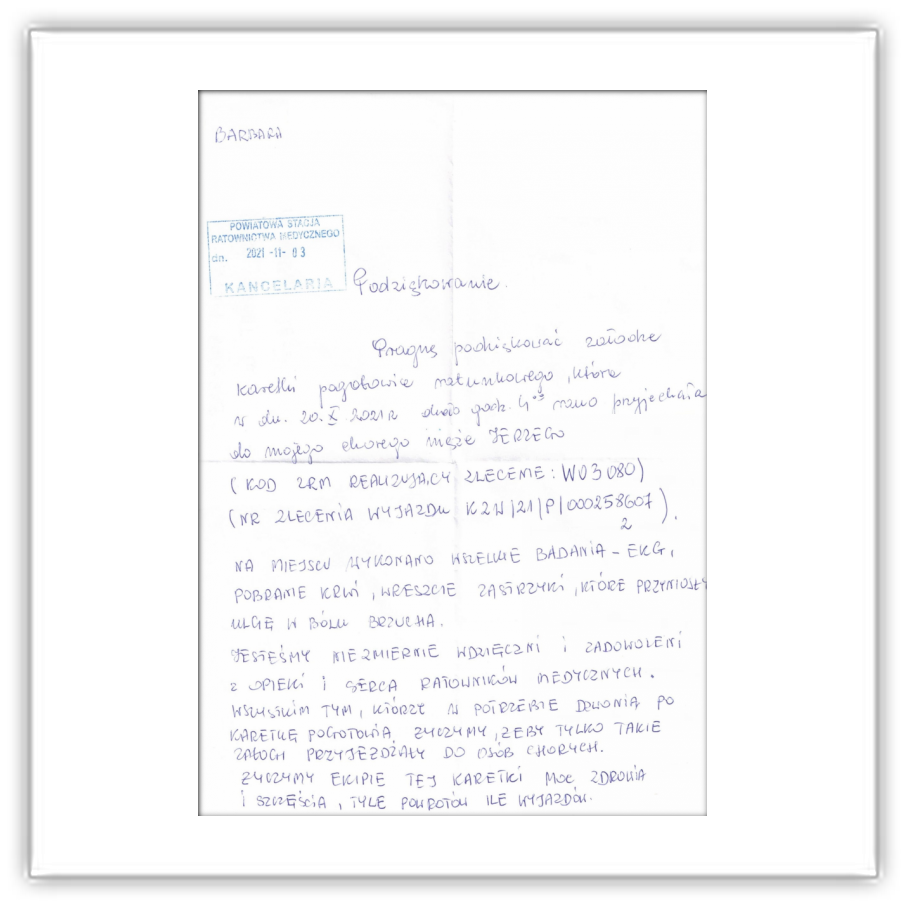 BARBARA
POWIATOWA STACJA
RATOWNICTWA MEDYCZNEGO
dn. 2021 -11- 03
KANCELARIA
Podziękowanie.
Pragnę podziękować załodze
karetki pogotowia ratunkowego, która
w dn. 20.X 2021r około godz. rano przyjechała
do mojego chorego męża JERZEGO
(KOD ZRM REALIZUJĄCY ZLECENIE: W03 080)
(NR ZLECENIA WYJAZDU K2W/21/P/000258607).
2
NA MIEJSCU WYKONANO WSZELKIE BADANIA - EKG,
POBRANIE KRWI, WRESZCIE ZASTRZYKI, KTÓRE PRZYNIOSŁY
ULGĘ W BÓLU BRZUCHA.
JESTEŚMY NIEZMIERNIE WDZIĘCZNI I ZADOWOLENI
Z OPIEKI I SERCA RATOWNIKÓW MEDYCZNYCH.
WSZYSTKIM TYM, KTÓRZY W POTRZEBIE DZWONIĄ PO
KARETKĘ POGOTOWIA, ŻYCZYMY, ŻEBY TYLKO TAKIE
ZAŁOGI PRZYJEŻDŻAŁY DO OSÓB CHORYCH.
ŻYCZYMY EKIPIE TEJ KARETKI MOC ZDROWIA
I SZCZĘŚCIA, TYLE POWROTÓW ILE WYJAZDÓW.